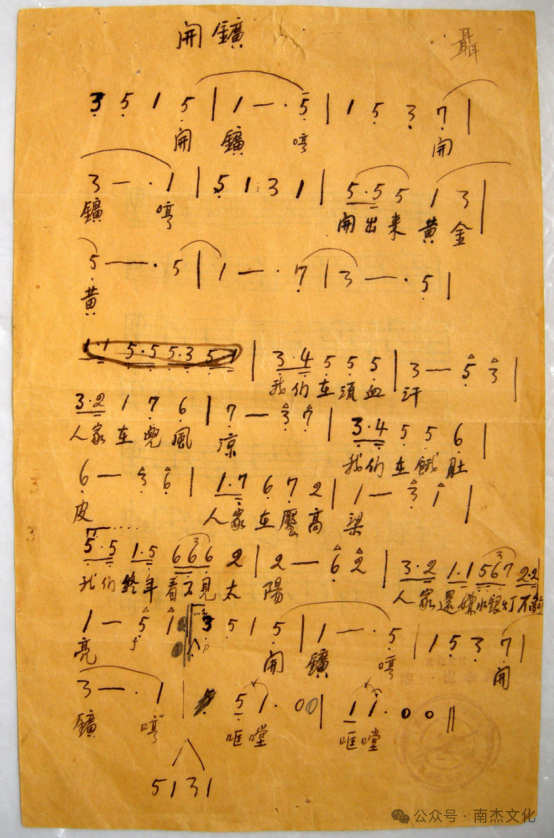 開鑛 聶
3 5 1 5 | 1 — · 5 | 1 5 3 7 |
開 鑛 哼 開
3 — · 1 | 5 1 3 1 | 5·5 5 1 3 |
鑛 哼 開出来黄金
5 — · 5 | 1 — · 7 | 3 — · 5 |
黄
1·1 5·5 5·3 5 1 | 3·4 5 5 5 | 3 — 5 3
我们在須血汗
3·2 1 7 6 | 7 — 3 7 | 3·4 5 5 6 |
人家在兜風凉 我们在餓肚
6 — 3 6 | 1·7 6 7 2 | 1 — 3 1 |
皮 人家在壓高梁
5·5 1·5 6 6 6 2 | 2 — 6 2 | 3·2 1·1 5 6 7 2·2
我们終年看不見太陽 人家還嫌水銀灯不够
1 — 5 1 | 3 5 1 5 | 1 — · 5 | 1 5 3 7 |
亮 f p 開 鑛 哼 開
3 — · 1 | 5 1· 0 0 | 1 1· 0 0 ||
鑛 哼 哐嘡 哐嘡
5 1 3 1
公众号·南杰文化